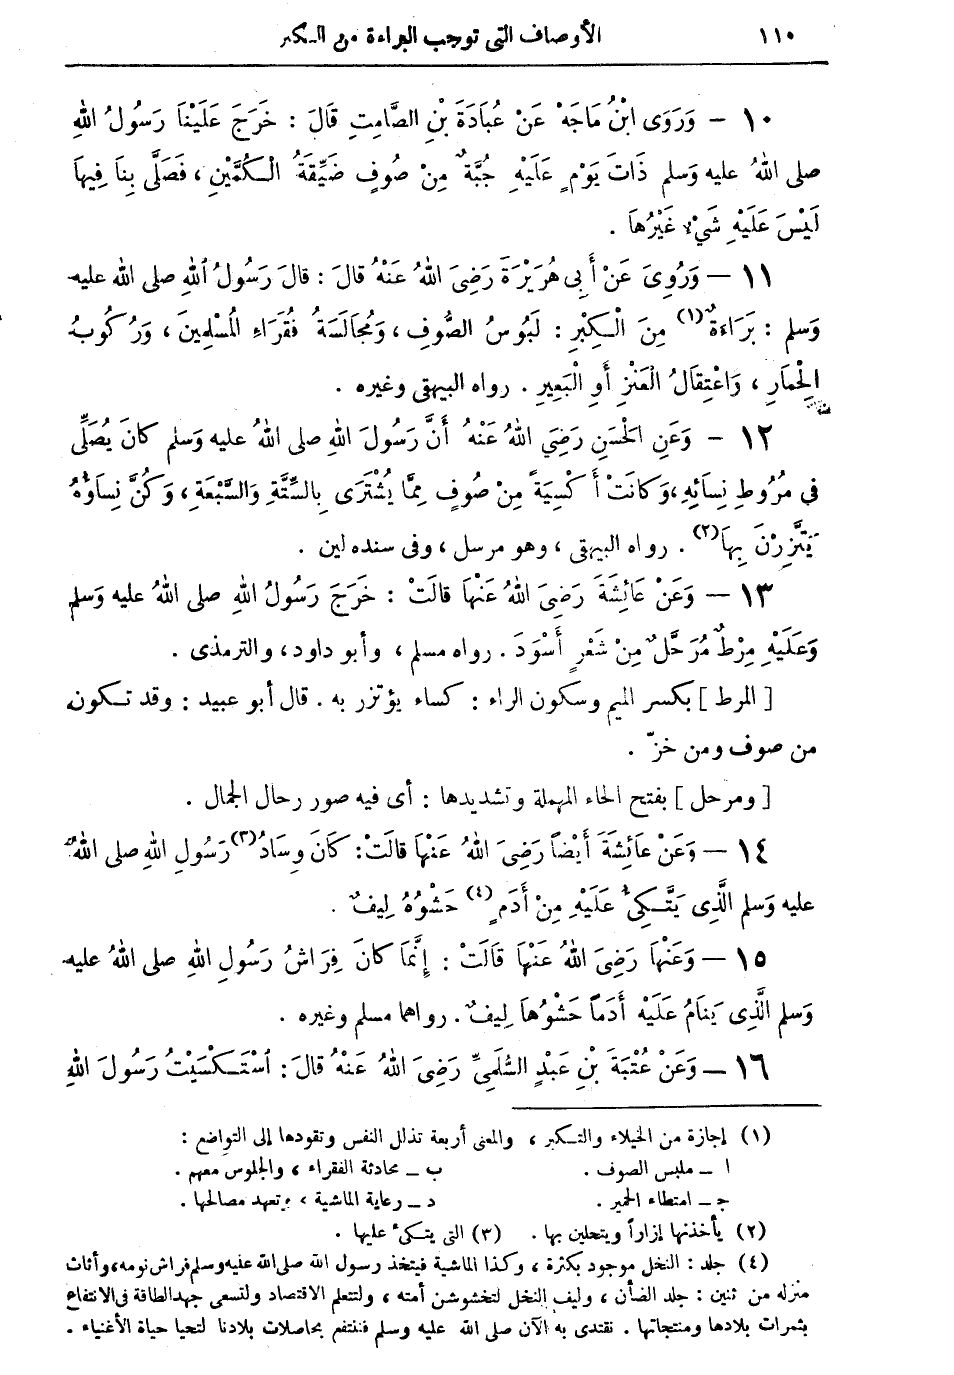 ١١٠ الأوصاف التى توجب البراءة من الكبر
١٠ – وَرَوَى ابْنُ مَاجَهْ عَنْ عُبَادَةَ بْنِ الصَّامِتِ قَالَ : خَرَجَ عَلَيْنَا رَسُولُ اللهِ
صلى اللهُ عليه وَسلم ذَاتَ يَوْمٍ عَلَيْهِ جُبَّةٌ مِنْ صُوفٍ ضَيِّقَةُ الْكُمَّيْنِ ، فَصَلَّى بِنَا فِيهَا
لَيْسَ عَلَيْهِ شَىْءٌ غَيْرُهَا .
١١ – وَرُوِىَ عَنْ أَبِى هُرَيْرَةَ رَضِىَ اللهُ عَنْهُ قالَ : قالَ رَسُولُ اللهِ صلى الله عليه
وَسلم : بَرَاءَةٌ (١) مِنَ الْكِبْرِ : لَبُوسُ الصُّوفِ ، وَمُجَالَسَةُ فُقَرَاءِ الْمُسْلِمِينَ ، وَرُكُوبُ
الْحِمَارِ ، وَاعْتِقَالُ الْعَنْزِ أَوِ الْبَعِيرِ . رواه البيهقى وغيره .
١٢ – وَعَنِ الْحَسَنِ رَضِيَ اللهُ عَنْهُ أَنَّ رَسُولَ اللهِ صلى اللهُ عليه وَسلم كانَ يُصَلِّى
فى مُرُوطِ نِسَائِهِ ، وَكَانَتْ أَكْسِيَةً مِنْ صُوفٍ مِمَّا يُشْتَرَى بِالسِّتَّةِ وَالسَّبْعَةِ ، وَكُنَّ نِسَاؤُهُ
يَتَّزِرْنَ بِهَا (٢) . رواه البيهقى ، وهو مرسل ، وفى سنده لين .
١٣ – وَعَنْ عَائِشَةَ رَضِىَ اللهُ عَنْهَا قالَتْ : خَرَجَ رَسُولُ اللهِ صلى اللهُ عليه وَسلم
وَعَلَيْهِ مِرْطٌ مُرَحَّلٌ مِنْ شَعْرٍ أَسْوَدَ . رواه مسلم ، وأبو داود ، والترمذى .
[ المرط ] بكسر الميم وسكون الراء : كساء يؤتزر به . قال أبو عبيد : وقد تكون
من صوف ومن خزّ .
[ ومرحل ] بفتح الحاء المهملة وتشديدها : أى فيه صور رحال الجمال .
١٤ – وَعَنْ عَائِشَةَ أَيْضاً رَضِىَ اللهُ عَنْهَا قالَتْ : كَانَ وِسَادُ (٣) رَسُولِ اللهِ صلى اللهُ
عليه وَسلم الَّذِى يَتَّكِئُ عَلَيْهِ مِنْ أَدَمٍ (٤) حَشْوُهُ لِيفٌ .
١٥ – وَعَنْهَا رَضِىَ اللهُ عَنْهَا قَالَتْ : إِنَّمَا كانَ فِرَاشُ رَسُولِ اللهِ صلى اللهُ عليه
وَسلم الَّذِى يَنَامُ عَلَيْهِ أَدَماً حَشْوُهَا لِيفٌ . رواهما مسلم وغيره .
١٦ – وَعَنْ عُتْبَةَ بْنِ عَبْدٍ السُّلَمِىِّ رَضِىَ اللهُ عَنْهُ قالَ : اسْتَكْسَيْتُ رَسُولَ اللهِ
(١) إجازة من الخيلاء والتكبر ، والمعنى أربعة تذلل النفس وتقودها إلى التواضع :
ا – ملبس الصوف . ب – محادثة الفقراء ، والجلوس معهم .
جـ – امتطاء الحمير . د – رعاية الماشية ، وتعهد مصالحها .
(٢) يأخذنها إزاراً ويتحلين بها . (٣) التى يتكىء عليها .
(٤) جلد : النخل موجود بكثرة ، وكذا الماشية فيتخذ رسول الله صلى الله عليه وسلم فراش نومه ، وأثاث
منزله من ثنين : جلد الضأن ، وليف النخل لتخشوشن أمته ، ولتتعلم الاقتصاد ولتسعى جهد الطاقة فى الانتفاع
بثمرات بلادها ومنتجاتها . نقتدى به الآن صلى الله عليه وسلم فننتفع بحاصلات بلادنا لتحيا حياة الأغنياء .